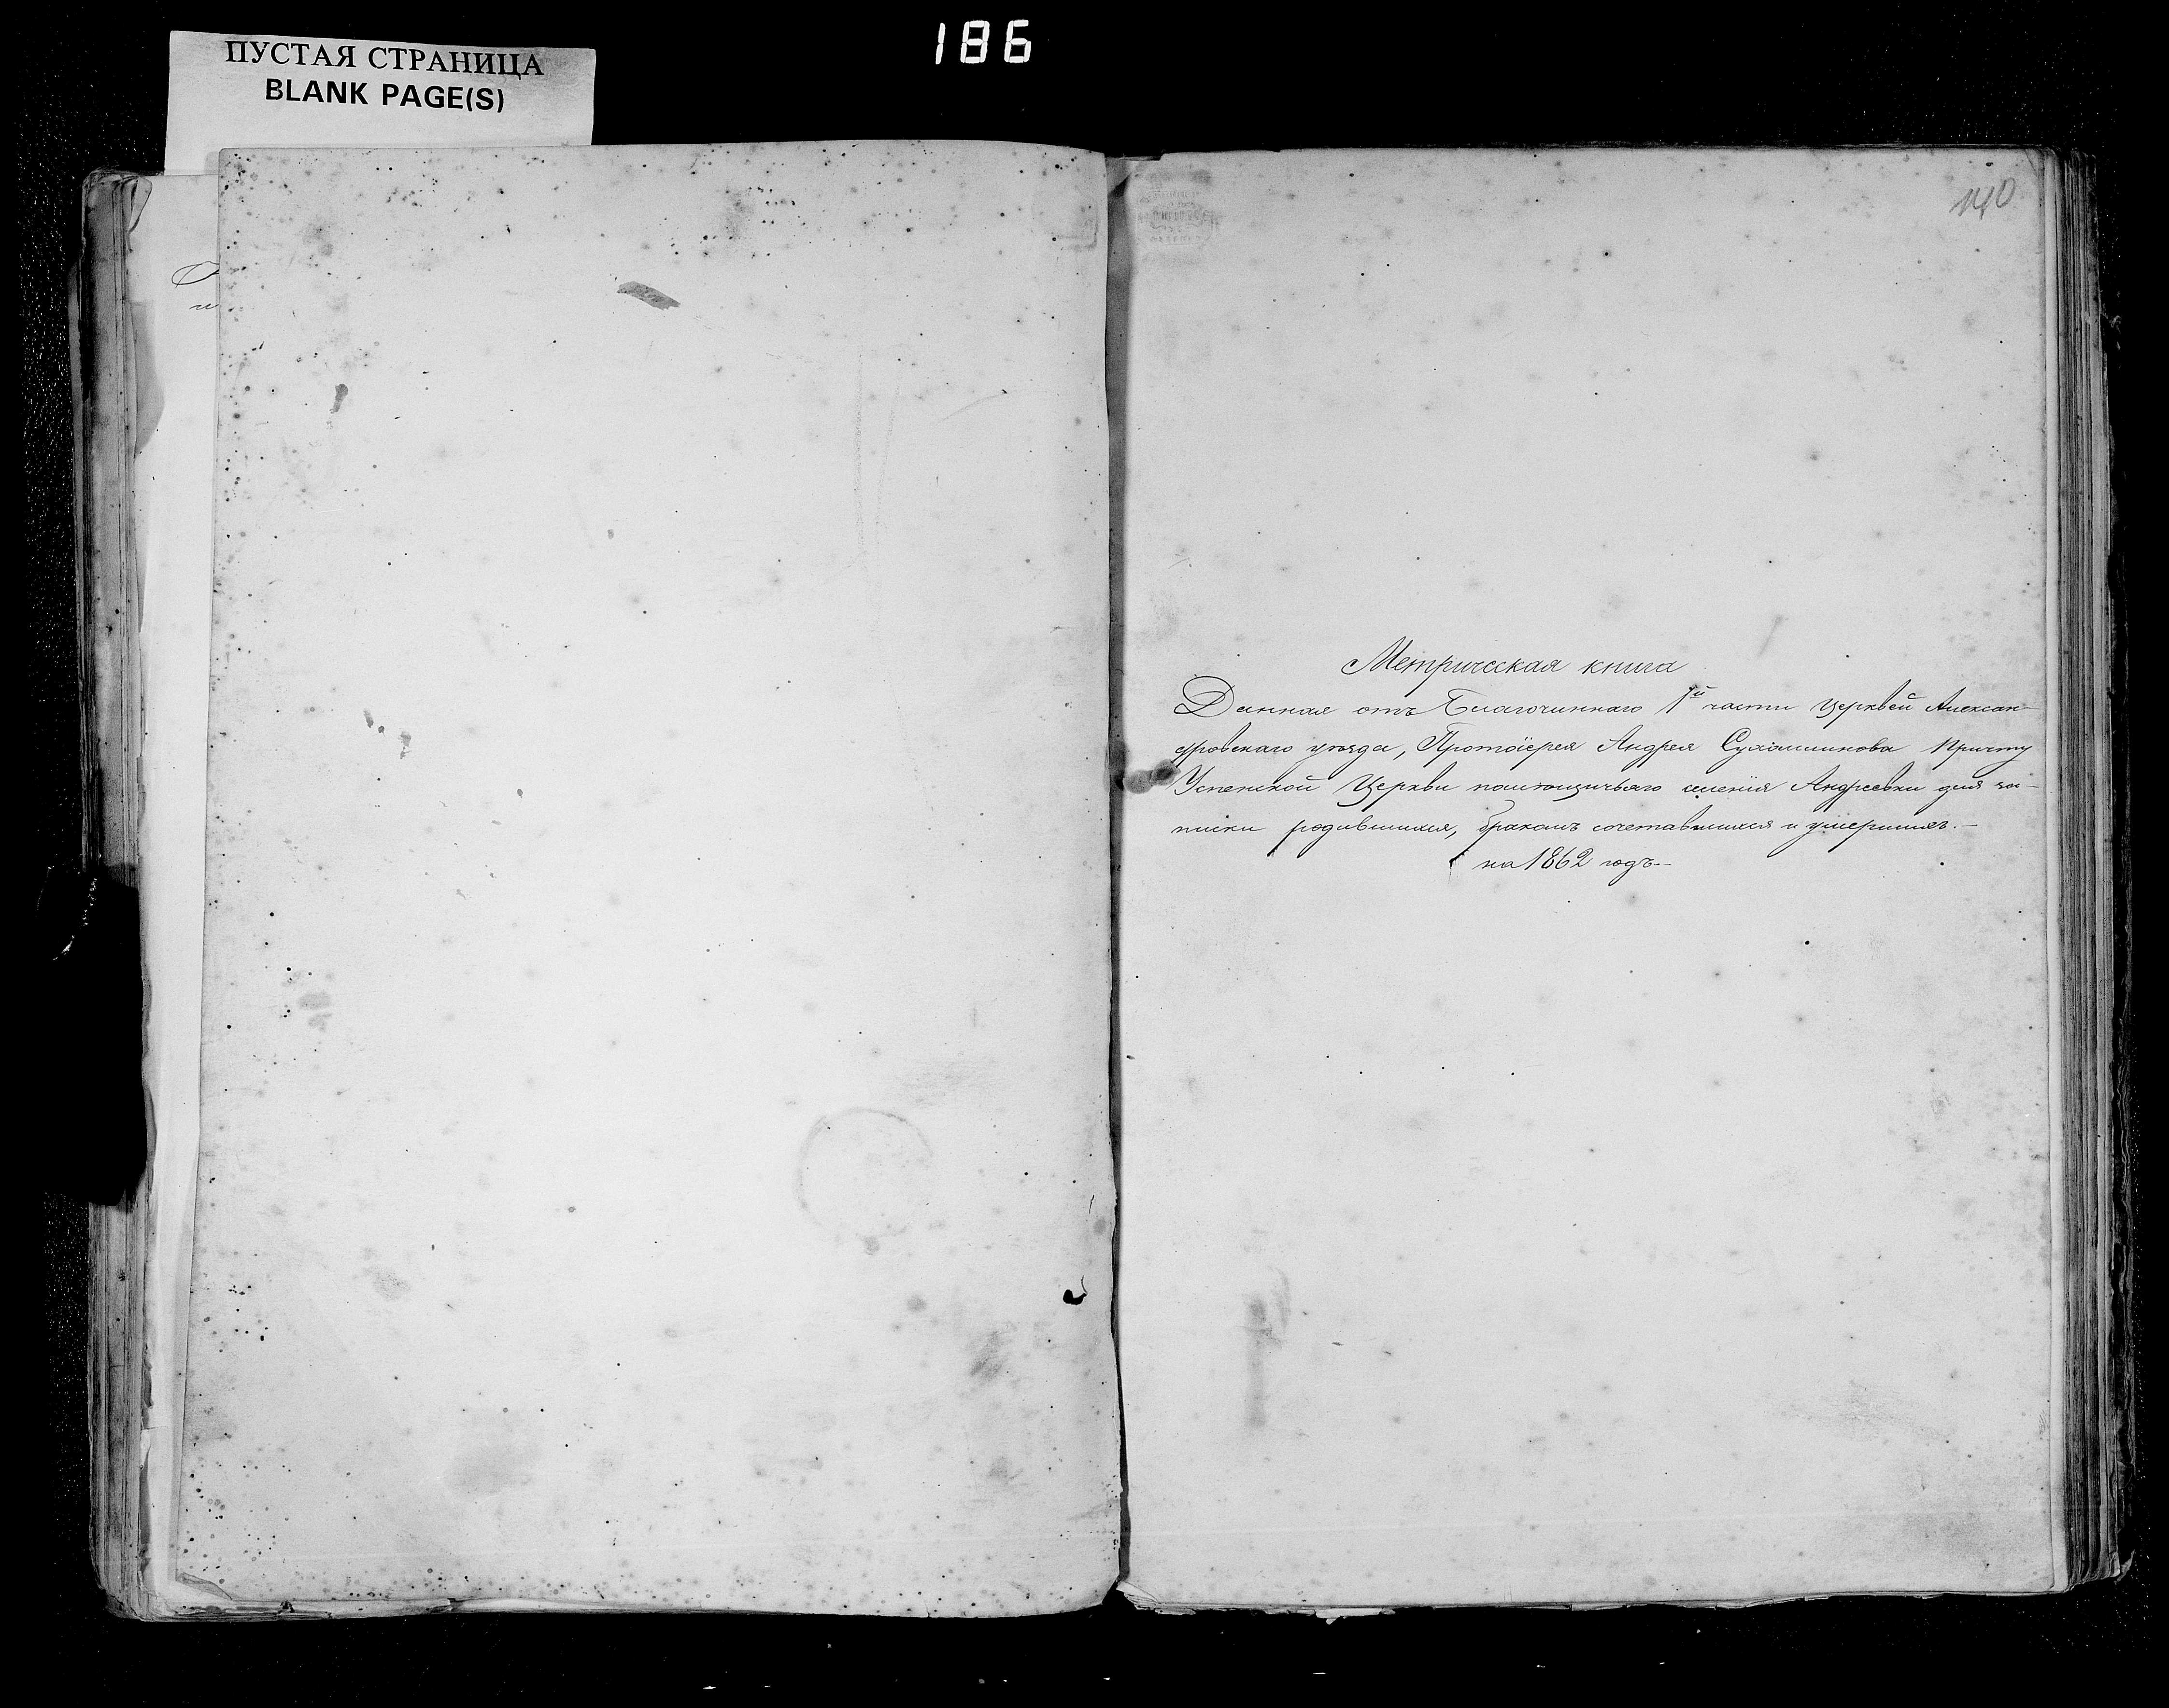 186
ПУСТАЯ СТРАНИЦА
BLANK PAGE(S)
140
Метрическая книга
Данная отъ Благочиннаго 1й части Церквей Алексан-
дровскаго уѣзда, Протоіерея Андрея Причту
Успенской Церкви помѣщичьяго имѣнія Андреевки для за-
писки родившихся, бракомъ сочетавшихся и умершихъ.-
на 1862 годъ.-